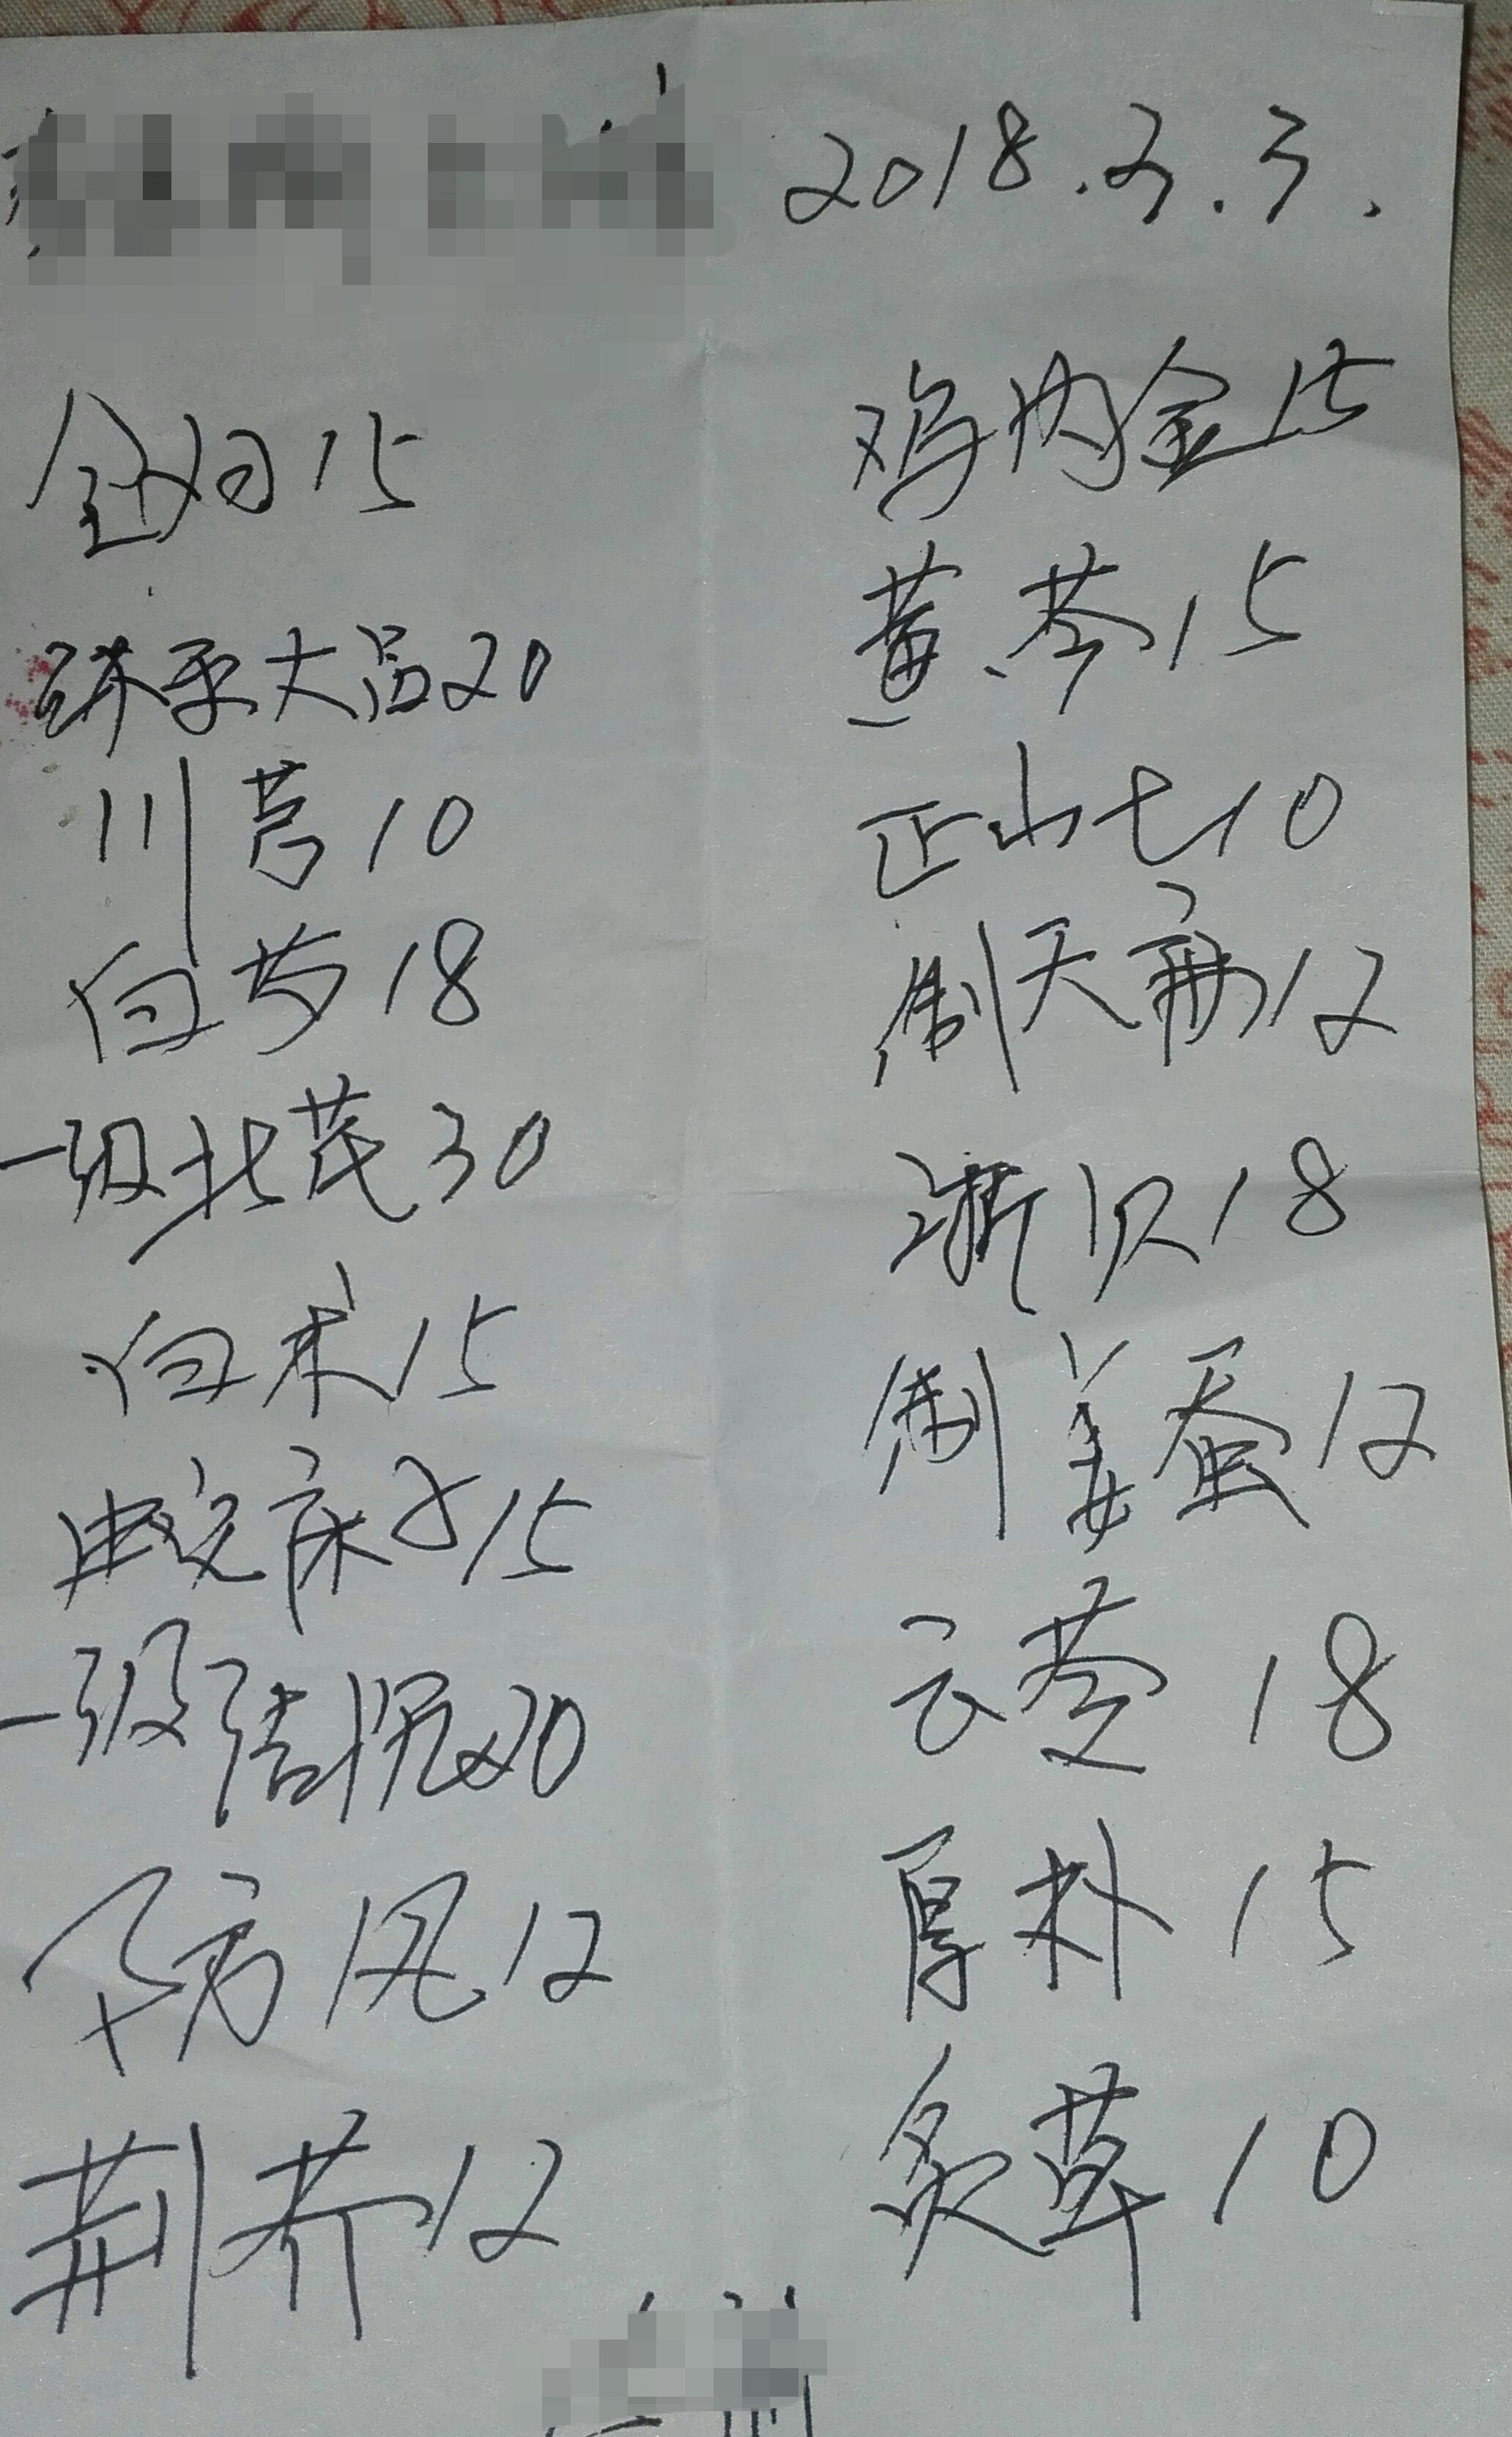 2018.2.3.
全归15
大吕20
川芎10
白芍18
一级北芪30
白术15
蛇床子15
一级洁杞20
防风12
荆芥12
鸡内金15
黄芩15
正山七10
制天南12
浙贝18
制姜蚕12
云苓18
厚朴15
炙草10